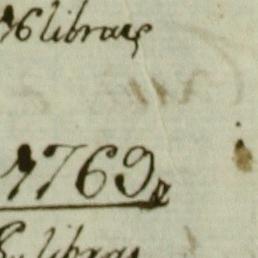 76 libras
1769
libras